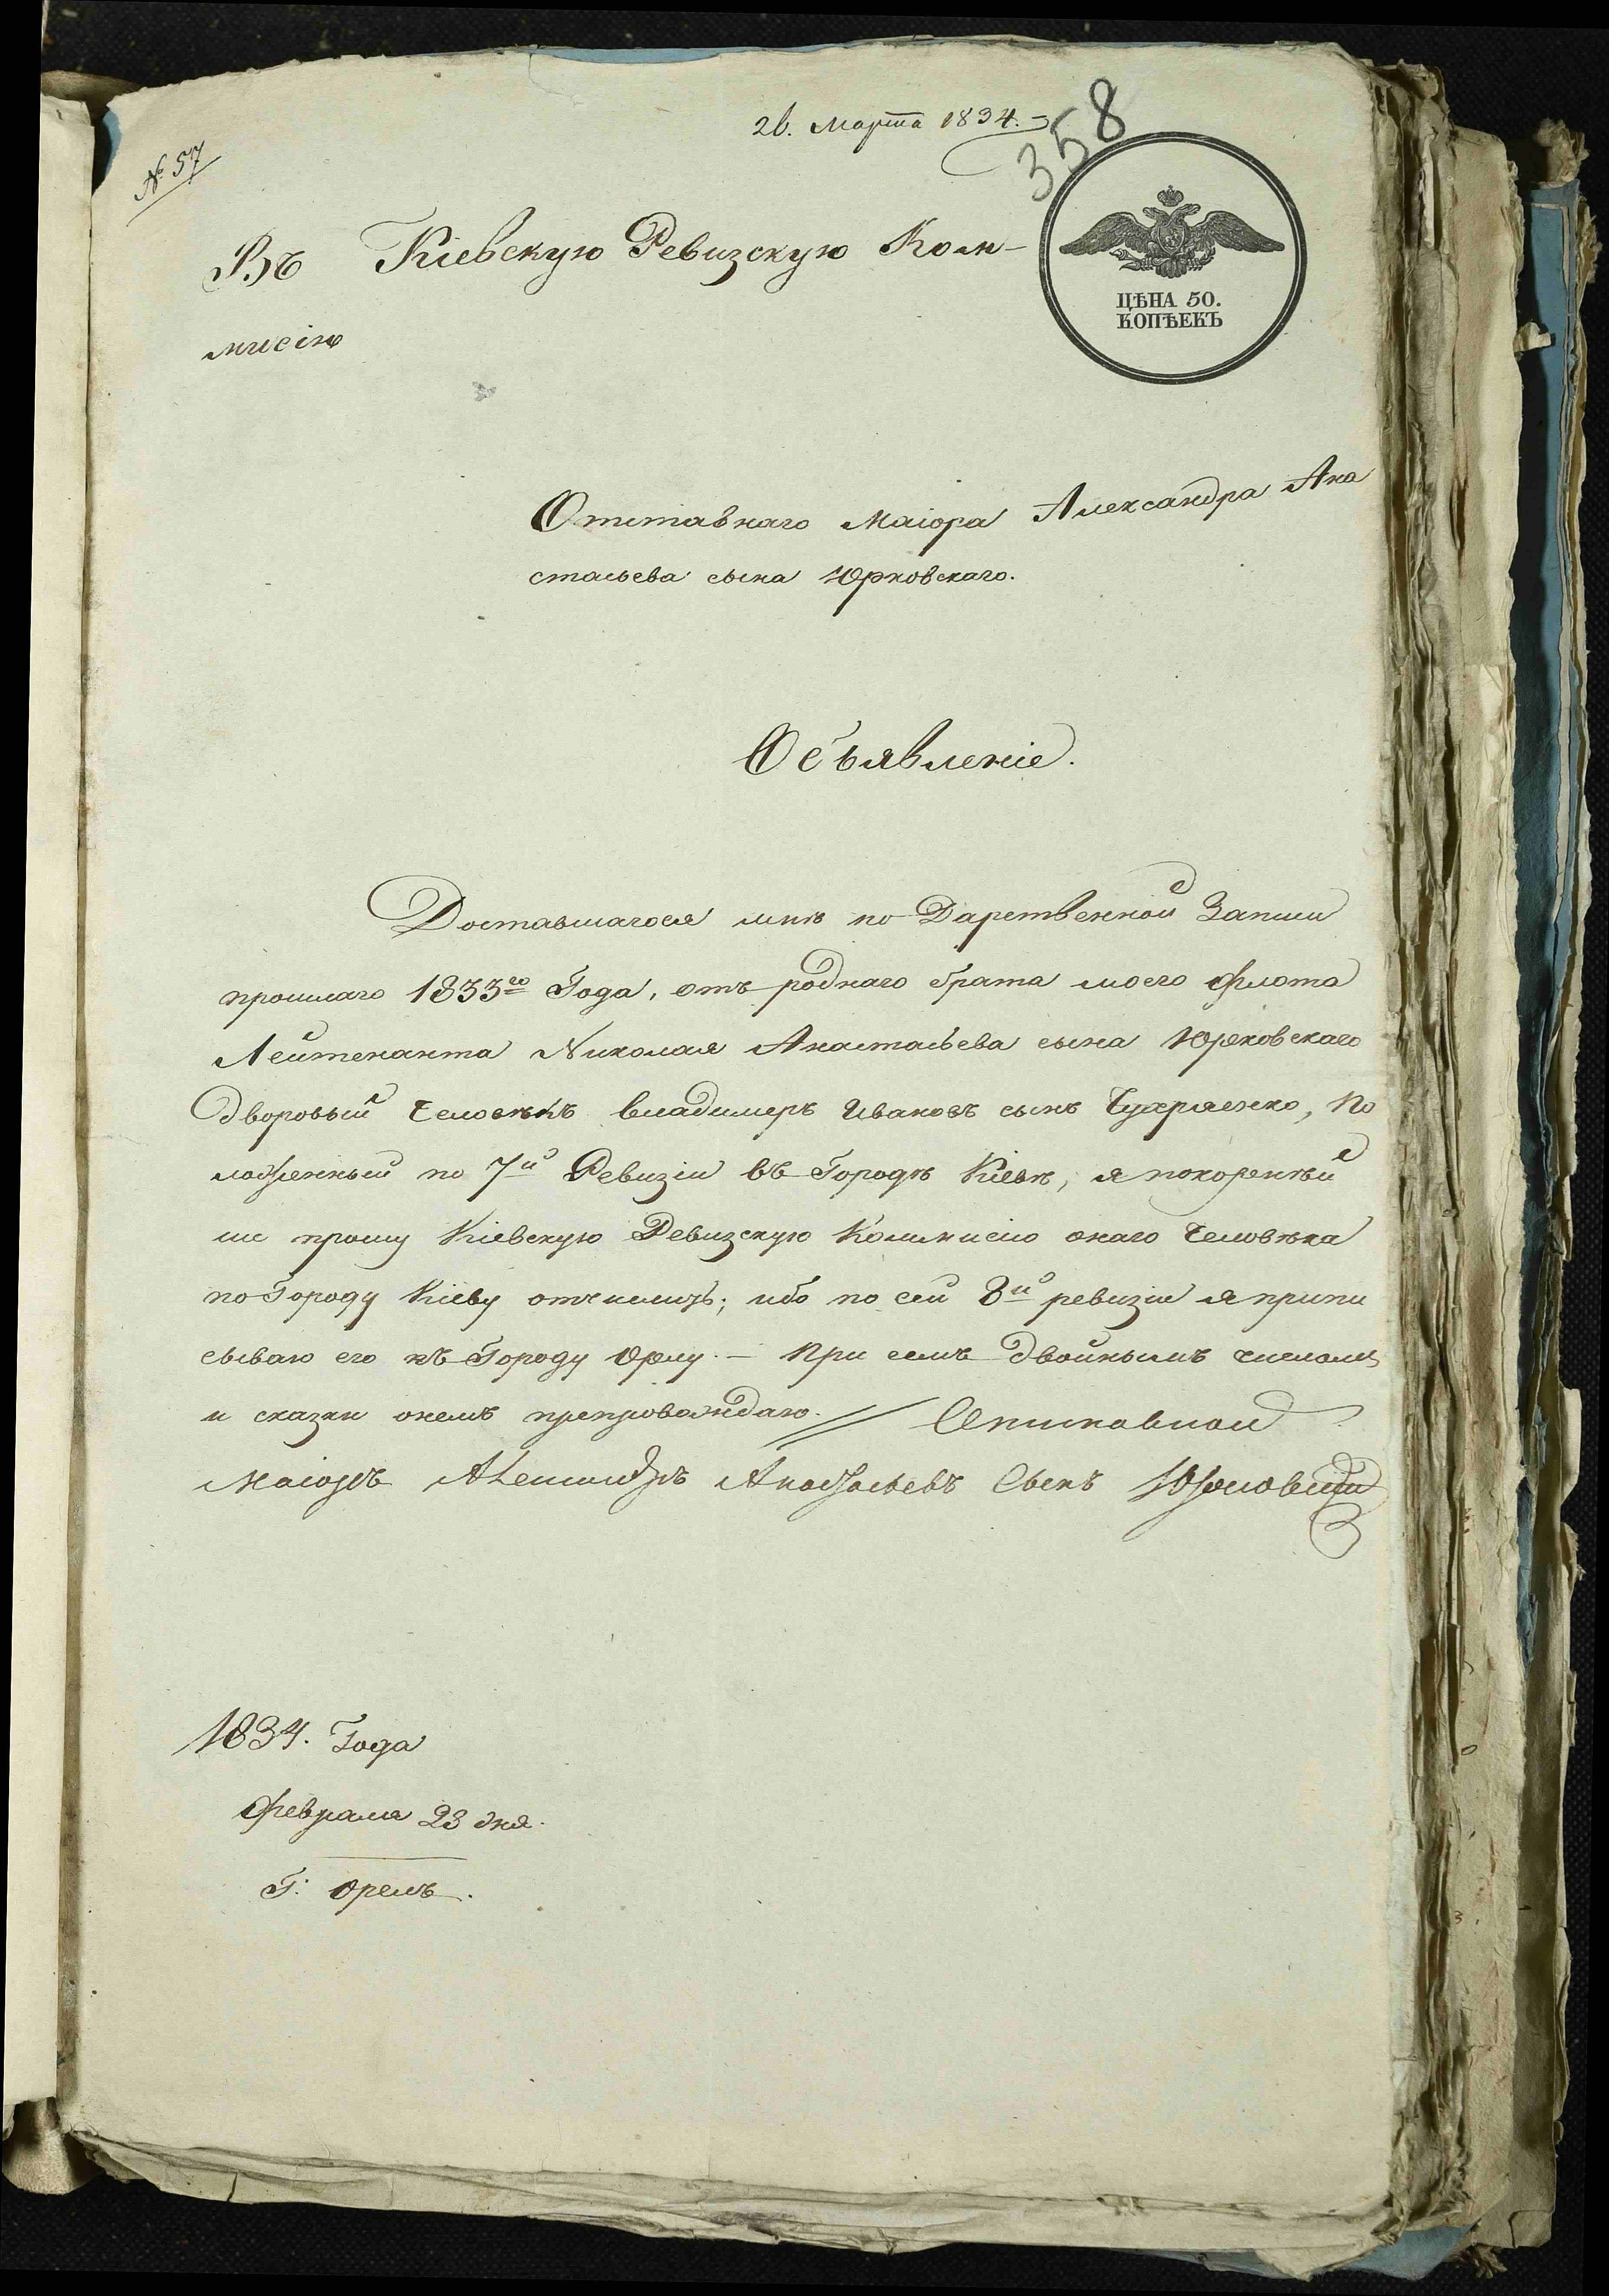 26. Марта 1834.
358
№ 57
Въ Кіевскую Ревизскую Ком-
мисію
ЦѢНА 50.
КОПѢЕКЪ
Отставнаго Маіора Александра Ана
стасьева сына Юрковскаго.
Объявленіе.
Доставшагося мнѣ по Дарственной Записи
прошлаго 1833го Года, отъ роднаго брата моего Флота
Лейтенанта Николая Анастасьева сына Юрковскаго
дворовый Человѣкъ Владимеръ Ивановъ сынъ, По
ложенный по 7й Ревизіи въ Городѣ Кіевѣ, я покорнѣй
ше прошу Кіевскую Ревизскую Коммисію онаго Человѣка
по Городу Кіеву отчислить; ибо по сей 8й ревизіи я припи
сываю его къ Городу Орлу. — При семъ двойнымъ числомъ
и сказки онемъ препровождаю. // Отставной
Маіоръ Александръ Анастасьевъ Сынъ Юрковскій
1834. Года
Февраля 23 дня.
Г: Орелъ.